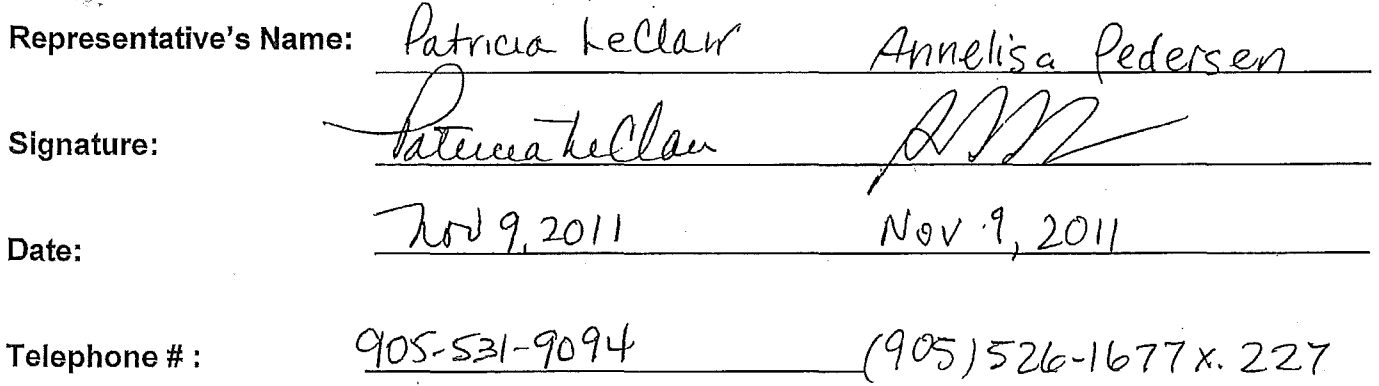 Representative's Name: Patricia LeClair Annelisa Pedersen
Signature: Patricia LeClair
Date: Nov 9, 2011 Nov 9, 2011
Telephone # : 905-531-9094 (905) 526-1677 x. 227